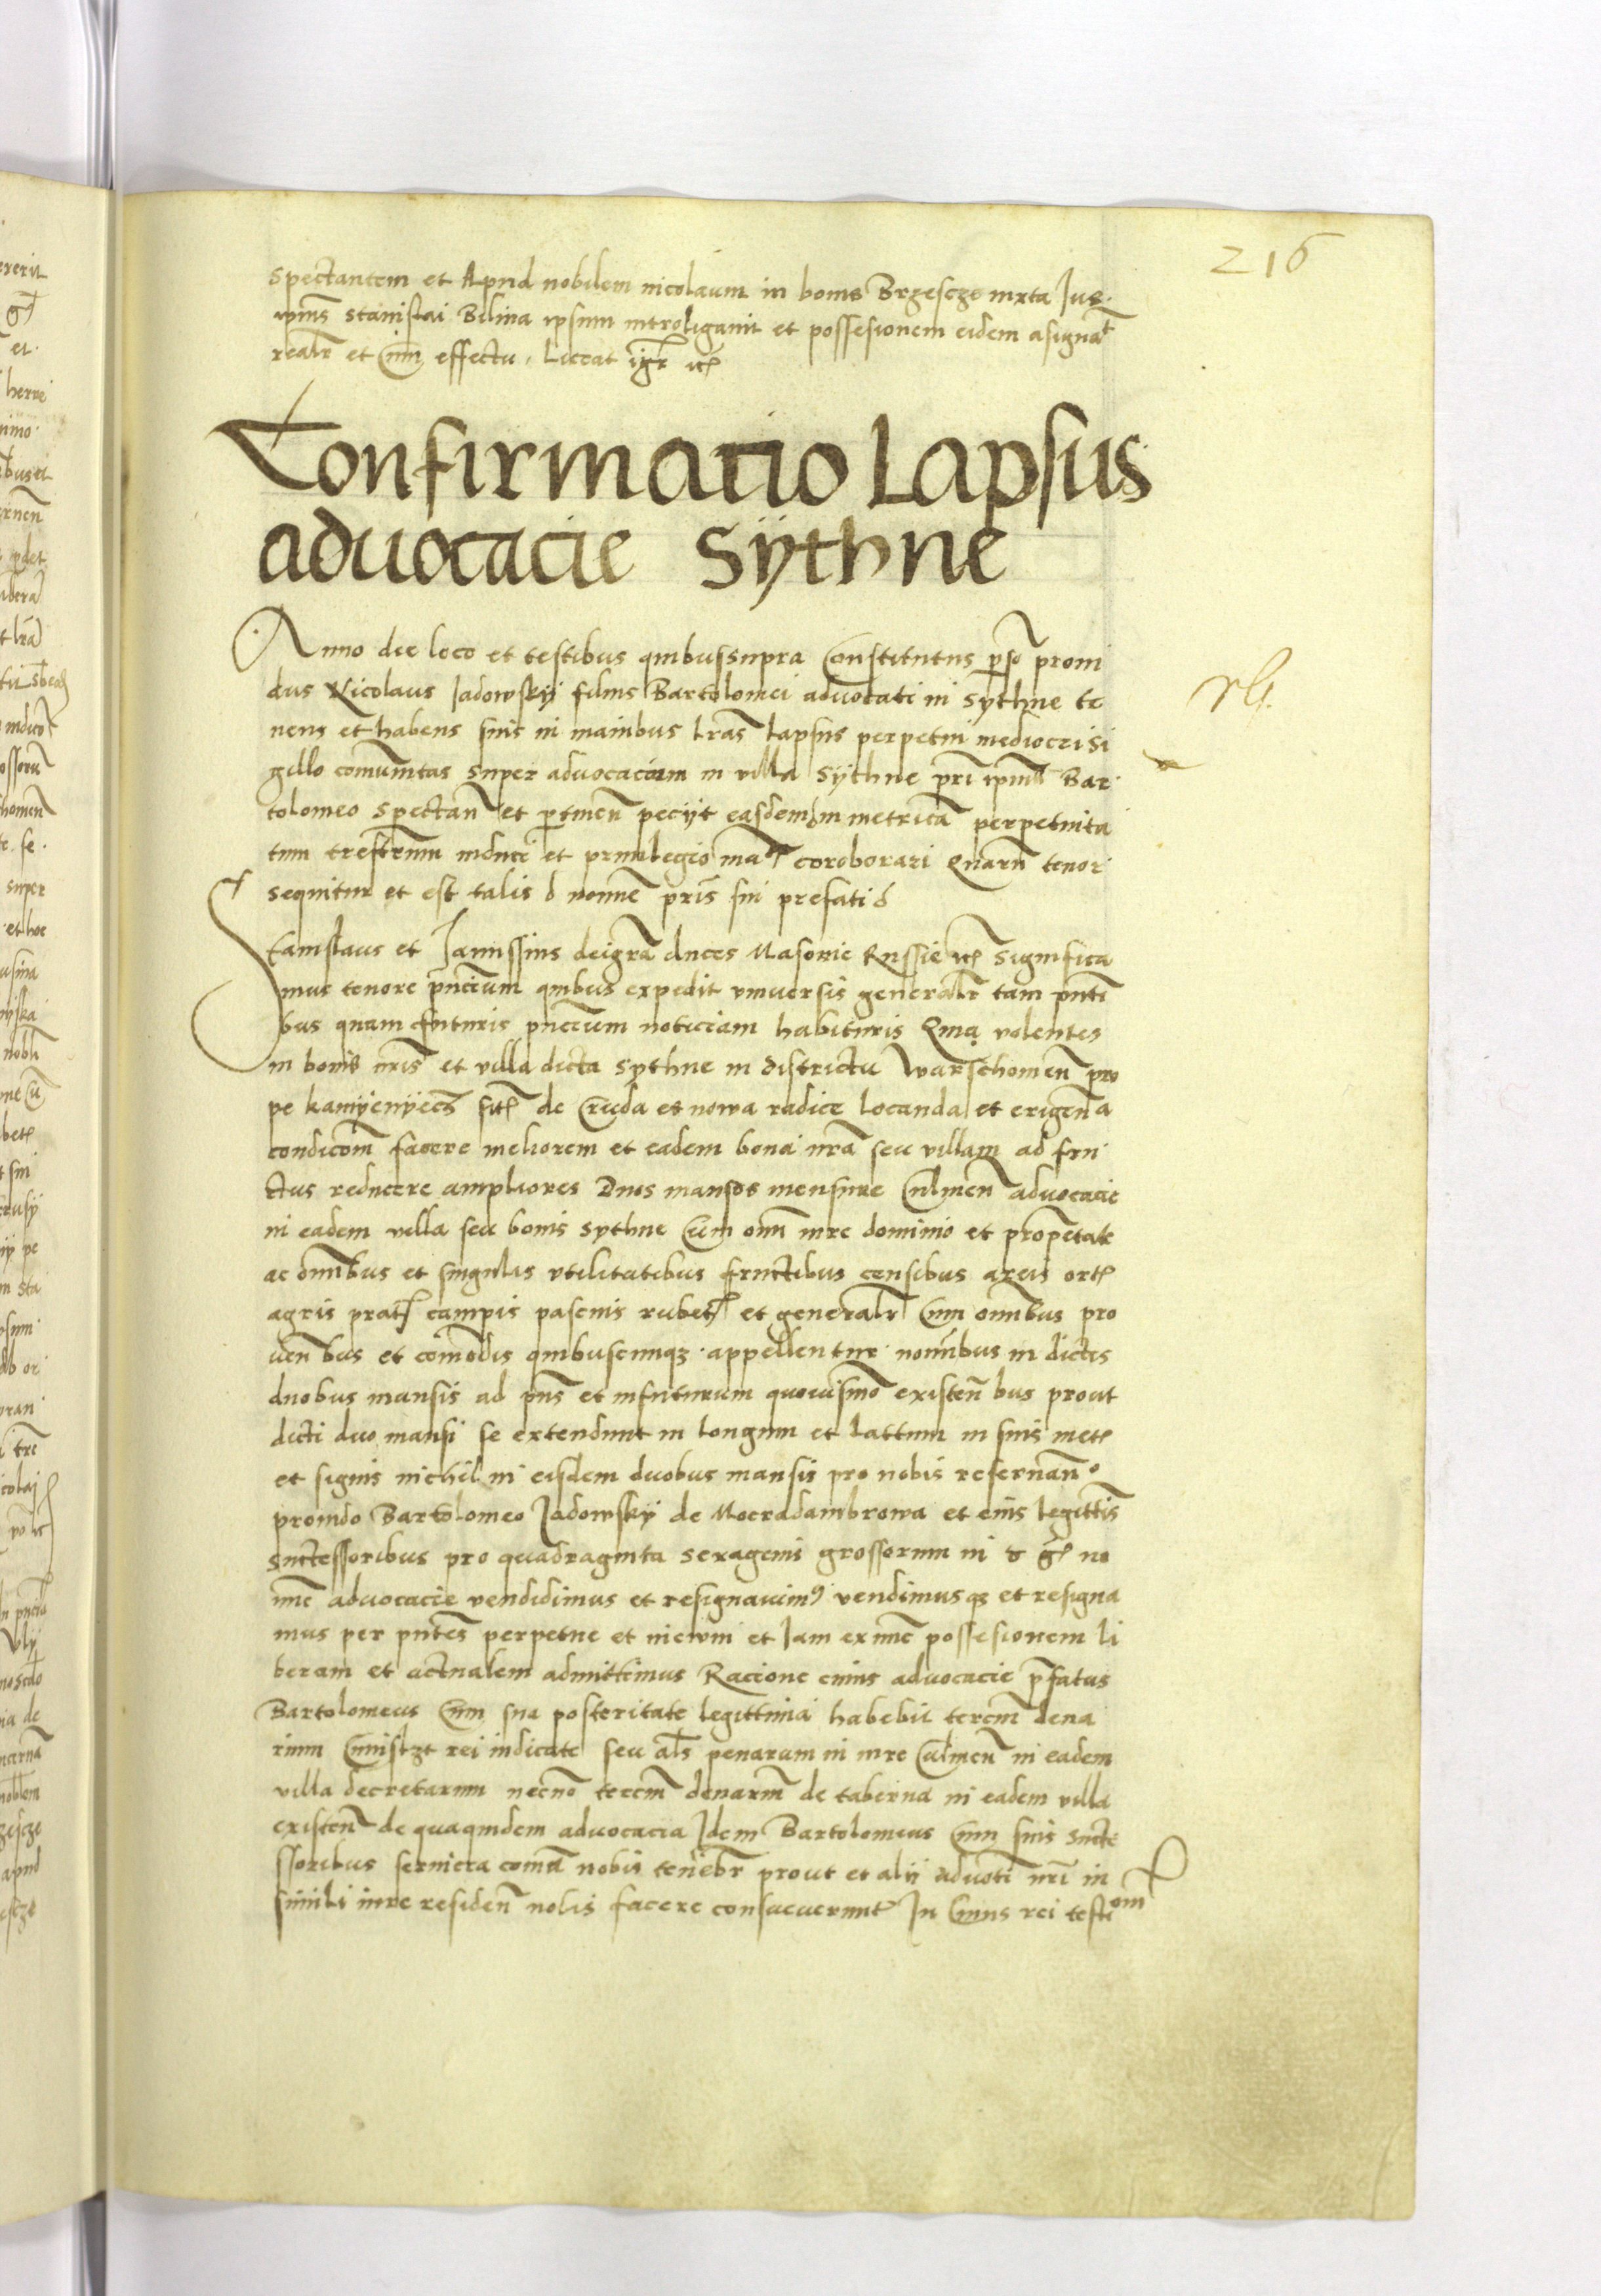 216
spectantem et Apud nobilem nicolaum in bonis Brzescze iuxta Jus
ipius stanislai Bilina ipsum introligauit et possesionem eidem asignat
realr et cum effectu . Liceat igr etc
Confirmatio Lapsus
aduocacie Sÿthne
Anno die loco et testibus quibussupra Constitutus perso proui
dus Nicolaus Jadowskÿ filius Bartolomei aduocati in sythne te
nens et habens suis in mainbus lras lapsus perpetui mediocri si
gillo comunitas super aduocaciam in villa sÿthne pri ipius Bar
tolomeo spectan et pertinen peciÿt easdem in metrica perpetuita
tum trestrium induci et priuilegio coroborari Quaru tenor
sequitur et est talis d nomie pris sui prefati d
Stanislaus et Janussius deigra duces Masouie Russie etc Significa
mus tenore pncium quibus expedit vniuersis generalr tam pnti
bus quam futuris pncium noticiam habituris Qma volentes
in bonis nris et villa dicta sythne in districtu warschouien pro
pe kamÿenÿecz sit de Cruda et nowa radice locanda et erigenda
condicom facere meliorem et eadem bona nra seu villam ad fru
ctus reducere ampliores Duos mansos mensure Culmen aduocacie
in eadem villa seu bonis sythne Cum omi iure dominio et propetate
ac omibus et singulis vtilitatibus fructibus censibus areis ort
agris prat campis pascuis rubet et generalr Cum omibus pro
uen bus et comodis quibuscumqz appellentur nomibus in dictis
duobus mansis ad pns et infuturum quouismo existen bus prout
dicti duo mansi se extendunt in longum et lattum in suis met
et signis nichil in eisdem duobus mansis pro nobis reseruan
prouido Bartolomeo Jadowskÿ de Mocradambrowa et eius legittis
successoribus pro quadraginta sexagenis grossorum in no
mie aduocacie vendidimus et resignauimus vendimusqz et resigna
mus per pntes perpetue et in ewm et Jam ex nuc possesionem li
beram et actualem admittimus Racione cuius aduocacie pfatus
Bartolomeus Cum sua posteritate legittima habebit tercim dena
rium Cuiuslzt rei iudicate seu als penarum in iure Culmen in eadem
villa decretarum necno tercim denarim de taberna in eadem villa
existen de quaquidem aduocacia Idem Bartolomeus Cum suis succe
ssoribus seruicia coma nobis tenebr prout et alii aduoti nri in
simili iure residen nobis facere consueuerunt In Cuius rei testiom